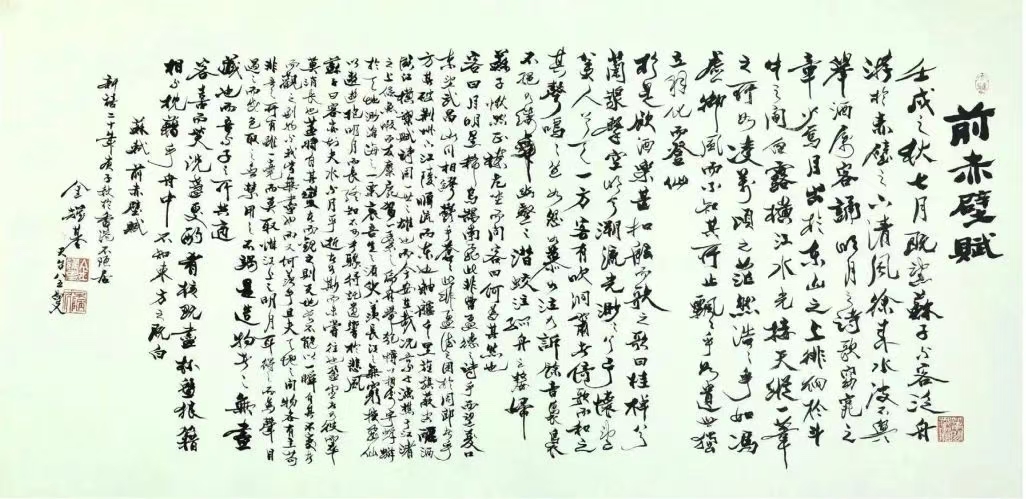 前赤壁賦
壬戌之秋七月既望蘇子與客泛舟
游於赤壁之下清風徐來水波不興
舉酒屬客誦明月之詩歌窈窕之
章少焉月出於東山之上徘徊於斗
牛之間白露橫江水光接天縱一葦
之所如凌萬頃之茫然浩浩乎如馮
虛御風而不知其所止飄飄乎如遺世獨
立羽化而登仙
於是飲酒樂甚扣舷而歌之歌曰桂棹兮
蘭槳擊空明兮溯流光渺渺兮予懷望
美人兮天一方客有吹洞簫者倚歌而和之
其聲嗚嗚然如怨如慕如泣如訴餘音裊裊
不絕如縷舞幽壑之潛蛟泣孤舟之嫠婦
蘇子愀然正襟危坐而問客曰何為其然也
客曰月明星稀烏鵲南飛此非曹孟德之詩乎西望夏口
東望武昌山川相繆鬱乎蒼蒼此非孟德之困於周郎者乎
方其破荊州下江陵順流而東也舳艫千里旌旗蔽空釃酒
臨江橫槊賦詩固一世之雄也而今安在哉況吾與子漁樵于江渚
之上侶魚蝦而友麋鹿駕一葉之扁舟舉匏樽以相屬寄蜉蝣
於天地渺滄海之一粟哀吾生之須臾羨長江之無窮挾飛仙
以遨遊抱明月而長終知不可乎驟得託遺響於悲風
蘇子曰客亦知夫水與月乎逝者如斯而未嘗往也盈虛者如彼而卒
莫消長也蓋將自其變者而觀之則天地曾不能以一瞬自其不變者
而觀之則物與我皆無盡也而又何羨乎且夫天地之間物各有主苟
非吾之所有雖一毫而莫取惟江上之明月耳得之而為聲目
遇之而成色取之無禁用之不竭是造物者之無盡
藏也而吾與子之所共適
客喜而笑洗盞更酌肴核既盡杯盤狼籍
相與枕籍乎舟中不知東方之既白
蘇軾前赤壁賦
二十年庚子秋於香港
金耀基